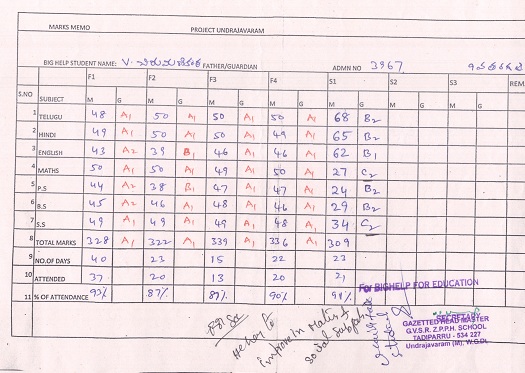 MARKS MEMO PROJECT UNDRAJAVARAM
BIG HELP STUDENT NAME: V. FATHER/GUARDIAN ADMN NO 3967
F1 F2 F3 F4 S1 S2 S3
S.NO SUBJECT M G M G M G M G M G M G M G REM
1 TELUGU 48 A1 50 A1 50 A1 50 A1 68 B2
2 HINDI 49 A1 50 A1 50 A1 49 A1 65 B2
3 ENGLISH 43 A2 39 B1 46 A1 46 A1 62 B1
4 MATHS 50 A1 50 A1 49 A1 50 A1 27 C2
5 P.S 44 A2 38 B1 47 A1 47 A1 24 B2
6 B.S 45 A2 46 A1 48 A1 46 A1 29 B2
7 S.S 49 A1 49 A1 49 A1 48 A1 34 C2
8 TOTAL MARKS 328 A1 322 A1 339 A1 336 A1 309
9 NO.OF DAYS 40 23 15 22 23
10 ATTENDED 37 20 13 20 21
11 % OF ATTENDANCE 92% 87% 87% 90% 91%
For BIGHELP FOR EDUCATION
He has to
improve in Maths &
social
SECRETARY
GAZETTED HEAD MASTER
G.V.S.R. Z.P.P.H. SCHOOL
TADIPARRU - 534 227
Undrajavaram (M), W.G.Dt.